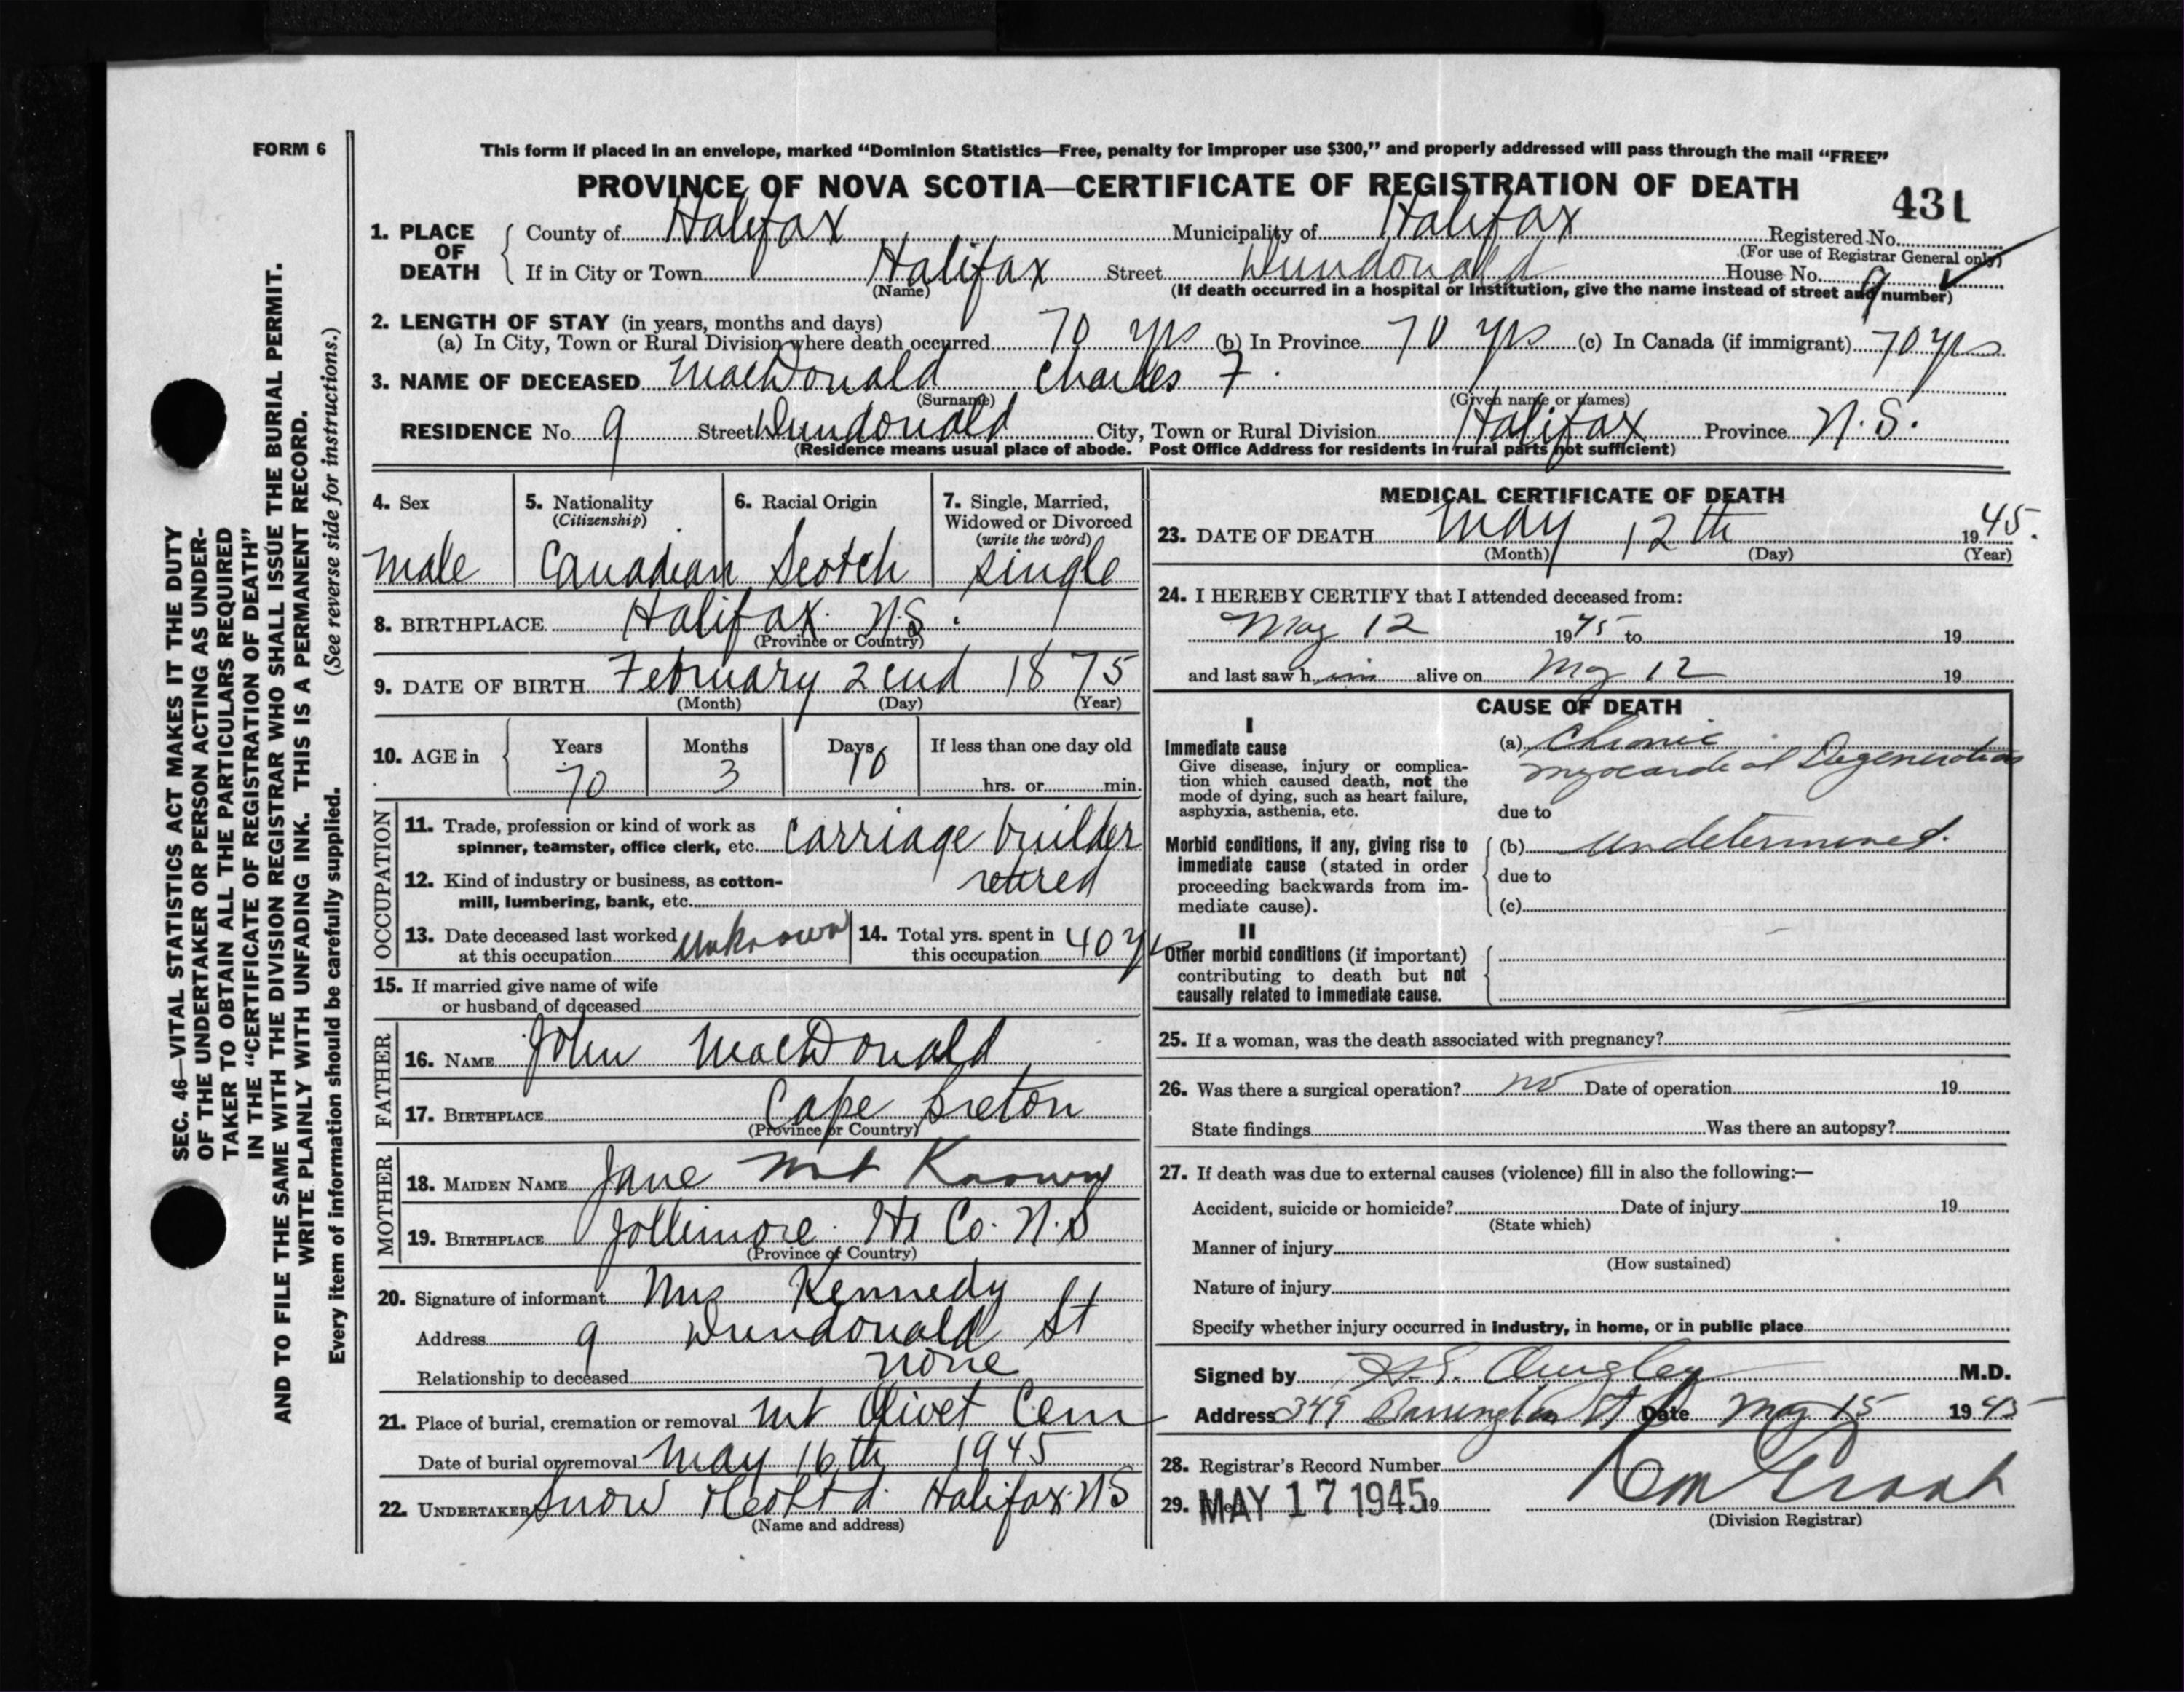 FORM 6
This form if placed in an envelope, marked “Dominion Statistics—Free, penalty for improper use $300,” and properly addressed will pass through the mail “FREE”
PROVINCE OF NOVA SCOTIA—CERTIFICATE OF REGISTRATION OF DEATH
431
1. PLACE OF DEATH
County of Halifax Municipality of Halifax Registered No.
(For use of Registrar General only)
If in City or Town Halifax Street Dundonald House No. 9
(Name) (If death occurred in a hospital or Institution, give the name instead of street and number)
2. LENGTH OF STAY (in years, months and days)
(a) In City, Town or Rural Division where death occurred 70 yrs (b) In Province 70 yrs (c) In Canada (if immigrant) 70 yrs
3. NAME OF DECEASED MacDonald Charles F.
(Surname) (Given name or names)
RESIDENCE No. 9 Street Dundonald City, Town or Rural Division Halifax Province N.S.
(Residence means usual place of abode. Post Office Address for residents in rural parts not sufficient)
4. Sex
male
5. Nationality
(Citizenship)
Canadian
6. Racial Origin
Scotch
7. Single, Married,
Widowed or Divorced
(write the word)
single
8. BIRTHPLACE Halifax N.S.
(Province or Country)
9. DATE OF BIRTH February 2cnd 1875
(Month) (Day) (Year)
10. AGE in
Years Months Days If less than one day old
70 3 10 hrs. or min.
OCCUPATION
11. Trade, profession or kind of work as
spinner, teamster, office clerk, etc. carriage builder
12. Kind of industry or business, as cotton-
mill, lumbering, bank, etc. retired
13. Date deceased last worked
at this occupation unknown
14. Total yrs. spent in
this occupation 40 yrs
15. If married give name of wife
or husband of deceased
FATHER
16. NAME John MacDonald
17. BIRTHPLACE Cape Breton
(Province or Country)
MOTHER
18. MAIDEN NAME Jane Not Known
19. BIRTHPLACE Jollimore Hx Co. N.S
(Province of Country)
20. Signature of informant Mrs Kennedy
Address 9 Dundonald St
Relationship to deceased none
21. Place of burial, cremation or removal Mt Olivet Cem
Date of burial or removal May 16th 1945
22. UNDERTAKER Snow & Co Ltd. Halifax N S
(Name and address)
MEDICAL CERTIFICATE OF DEATH
23. DATE OF DEATH May 12th 1945.
(Month) (Day) (Year)
24. I HEREBY CERTIFY that I attended deceased from:
May 12 1945 to 19
and last saw him alive on May 12 19
CAUSE OF DEATH
I
Immediate cause
Give disease, injury or complica-
tion which caused death, not the
mode of dying, such as heart failure,
asphyxia, asthenia, etc.
(a) Chronic
myocardial Degeneration
due to
Morbid conditions, if any, giving rise to
immediate cause (stated in order
proceeding backwards from im-
mediate cause).
(b) undetermined.
due to
(c)
II
Other morbid conditions (if important)
contributing to death but not
causally related to immediate cause.
25. If a woman, was the death associated with pregnancy?
26. Was there a surgical operation? no Date of operation 19
State findings Was there an autopsy?
27. If death was due to external causes (violence) fill in also the following:—
Accident, suicide or homicide? Date of injury 19
(State which)
Manner of injury
(How sustained)
Nature of injury
Specify whether injury occurred in industry, in home, or in public place
Signed by M.D.
Address 349 Barrington St Date May 15 1945
28. Registrar's Record Number
29. MAY 17 1945 19
(Division Registrar)
SEC. 46—VITAL STATISTICS ACT MAKES IT THE DUTY
OF THE UNDERTAKER OR PERSON ACTING AS UNDER-
TAKER TO OBTAIN ALL THE PARTICULARS REQUIRED
IN THE “CERTIFICATE OF REGISTRATION OF DEATH”
AND TO FILE THE SAME WITH THE DIVISION REGISTRAR WHO SHALL ISSUE THE BURIAL PERMIT.
WRITE PLAINLY WITH UNFADING INK. THIS IS A PERMANENT RECORD.
Every item of information should be carefully supplied. (See reverse side for instructions.)